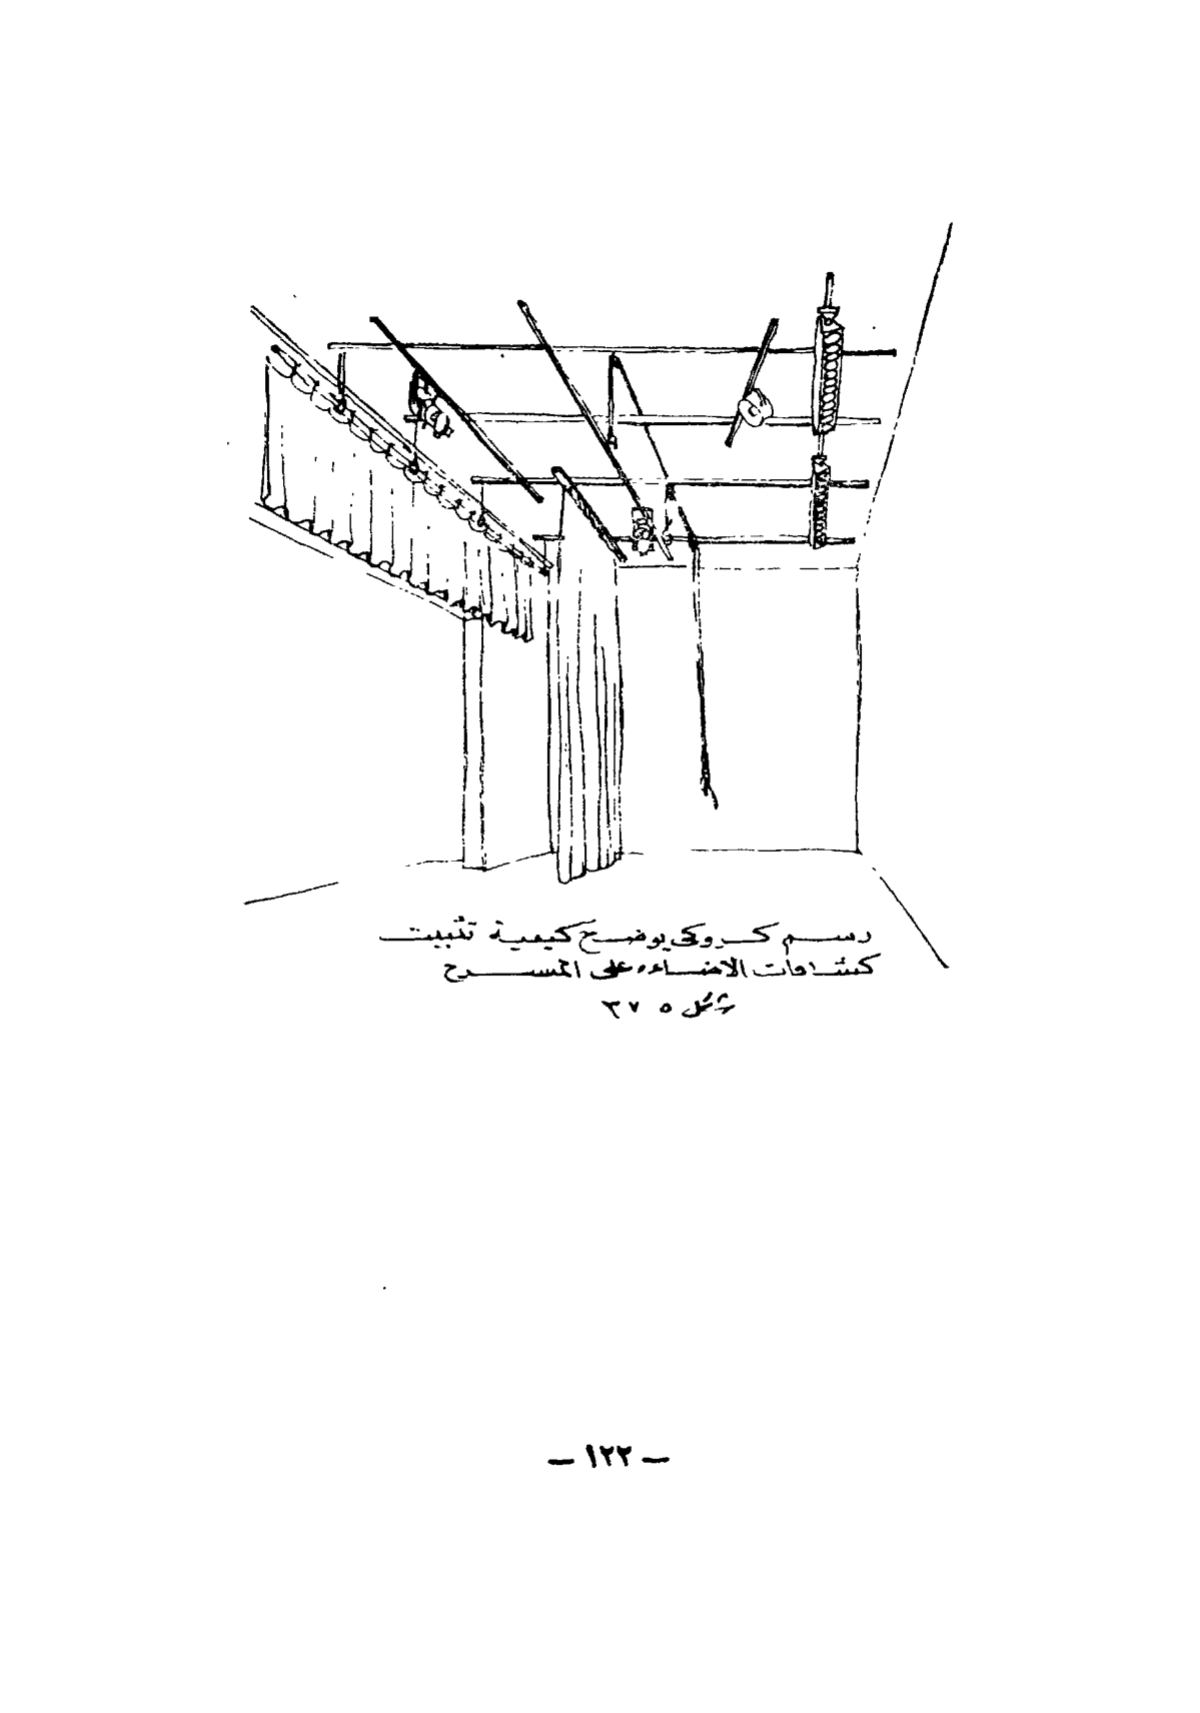 رسم كروكى يوضح كيفية تثبيت
كشافات الاضاءه على المسرح
شكل ٣٧٥
— ١٢٢ —